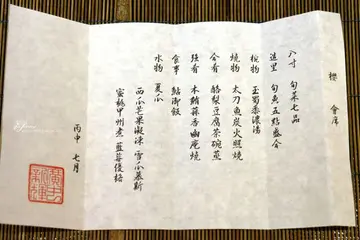 櫻 會席
八寸 旬菜七品
造里 旬魚五點盛合
椀物 玉蜀黍濃湯
燒物 太刀魚炭火燒
合肴 酪梨豆腐茶碗蒸
強肴 本鮪蒜香幽庵燒
食事 鮎御飯
水物 夏瓜
西瓜芒果凝凍 雪瓜慕斯
蜜桃甲州煮 藍莓優格
丙申 七月